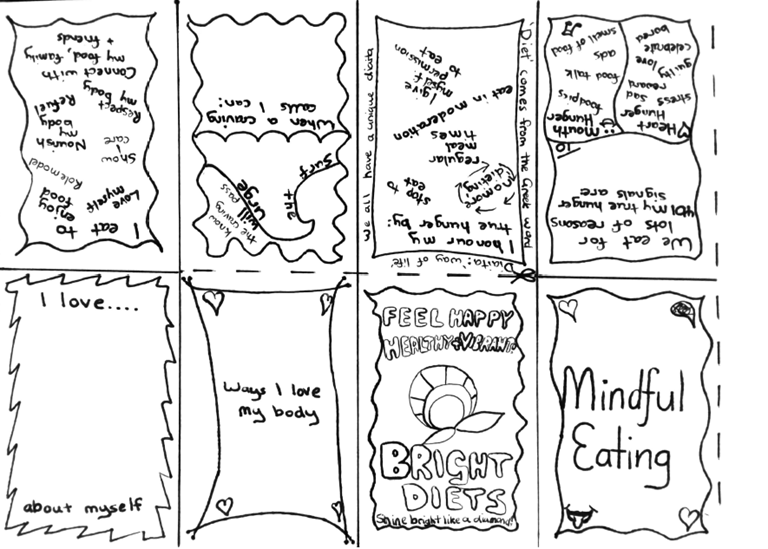 I eat to
enjoy
food
Love
myself
Role model
Show
I
care
Nourish
my
body
Refuel
Respect
my body
Connect with
my food, family
+ friends
When a craving
calls I can:
Surf
the
urge
know
the craving
will pass
I honour my
true hunger by:
stop to
eat
no more
dieting
regular
meal
times
eat in moderation
I give
myself
permission
to eat
we all have a unique diaita
'Diet' comes from the Greek word
'Diaita': way of life
We eat for
lots of reasons
my true hunger
signals are
10
Mouth
Hunger
food pics
food talk
ads
smell of food
Heart
Hunger
stress sad
reward
guilty love
celebrate
bored
I love....
about myself
Ways I love
my body
FEEL HAPPY
HEALTHY+VIBRANT
BRIGHT
DIETS
Shine bright like a diamond!
Mindful
Eating